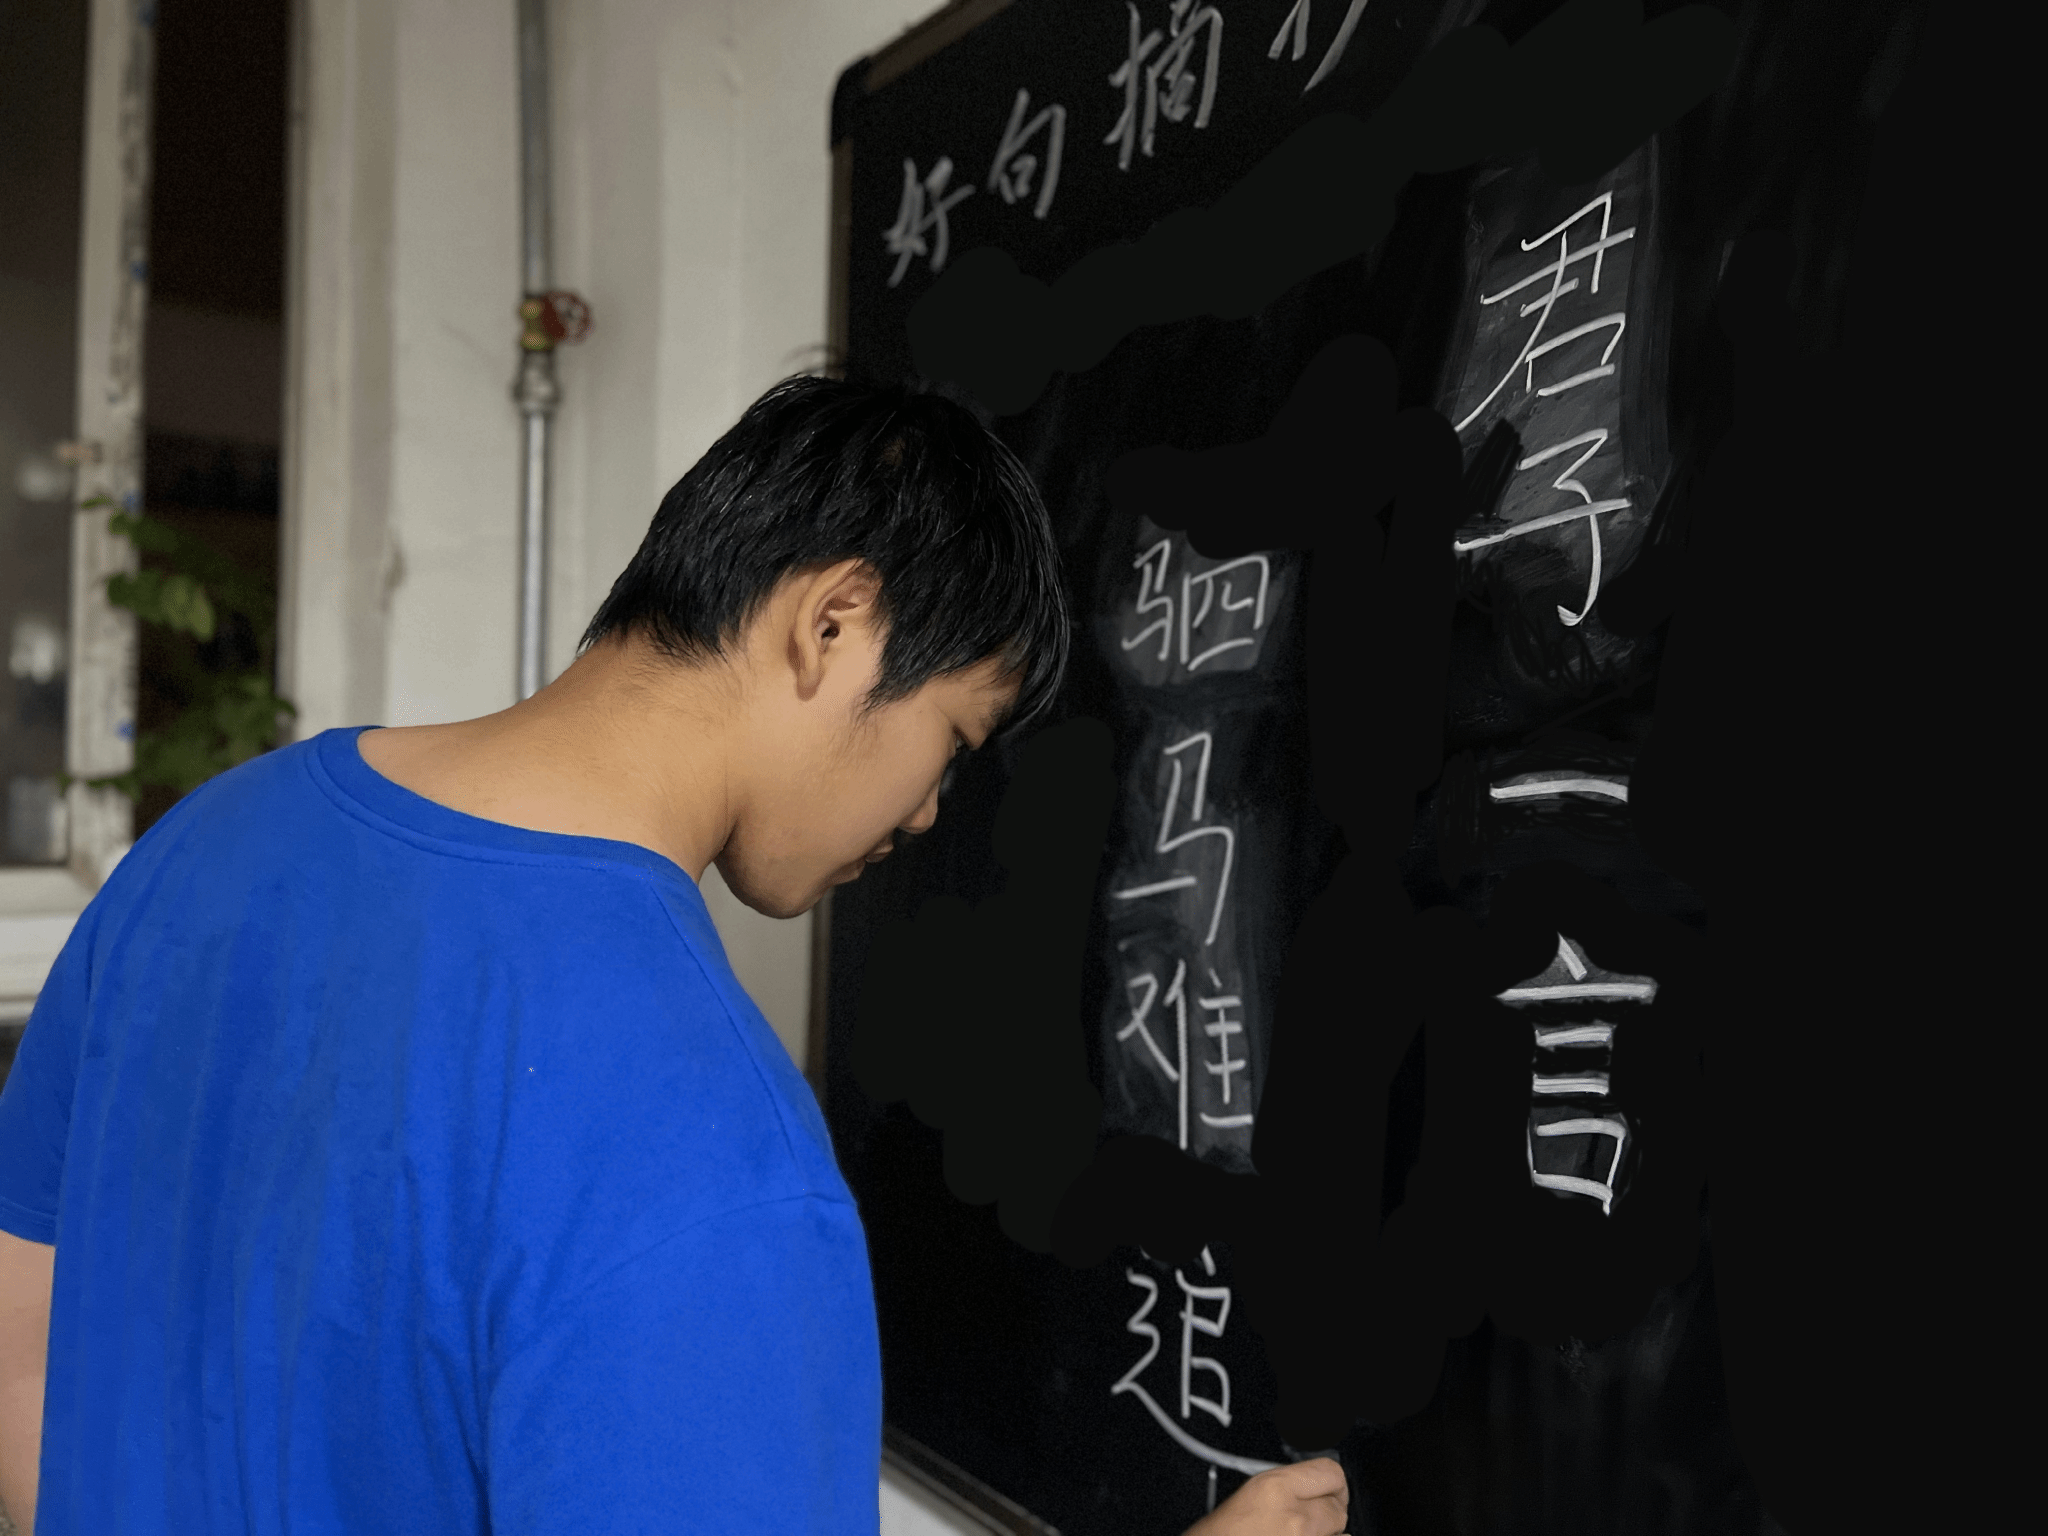 好句摘
君子一言
驷马难追